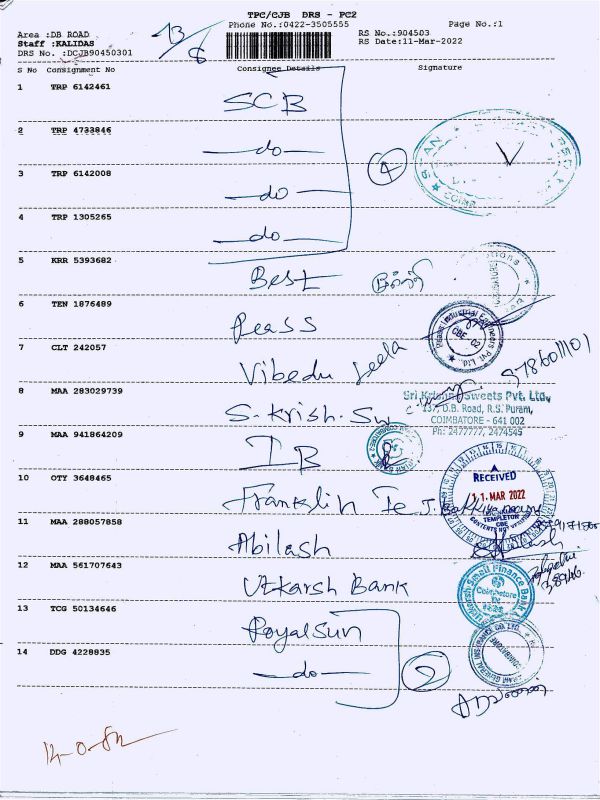 TPC/CJB DRS - PC2
Phone No.:0422-3505555
Page No.:1
Area :DB ROAD
Staff :KALIDAS
DRS No. :DCJB90450301
13/6
RS No.:904503
RS Date:11-Mar-2022
S No Consignment No Consignee Details Signature
1 TRP 6142461 SCB
2 TRP 4733846 —do—
3 TRP 6142008 —do—
4 TRP 1305265 —do—
4
5 KRR 5393682 Best
6 TEN 1876489 Peass
7 CLT 242057 Vibedu Leela
9786011101
8 MAA 283029739 S-Krish-Sw
Sri Krishna Sweets Pvt. Ltd.,
137, D.B. Road, R.S. Puram,
COIMBATORE - 641 002
Ph: 2477777, 2474545
9 MAA 941864209 IB
10 OTY 3648465 Franklin Te
RECEIVED
11 MAR 2022
TEMPLETON
CBE
CONTENTS NOT VERIFIED
11 MAA 288057858 Abilash
12 MAA 561707643 Utkarsh Bank
Utkarsh Small Finance Bank
Coimbatore
13 TCG 50134646 RoyalSun
14 DDG 4228835 —do—
2
14-0-82